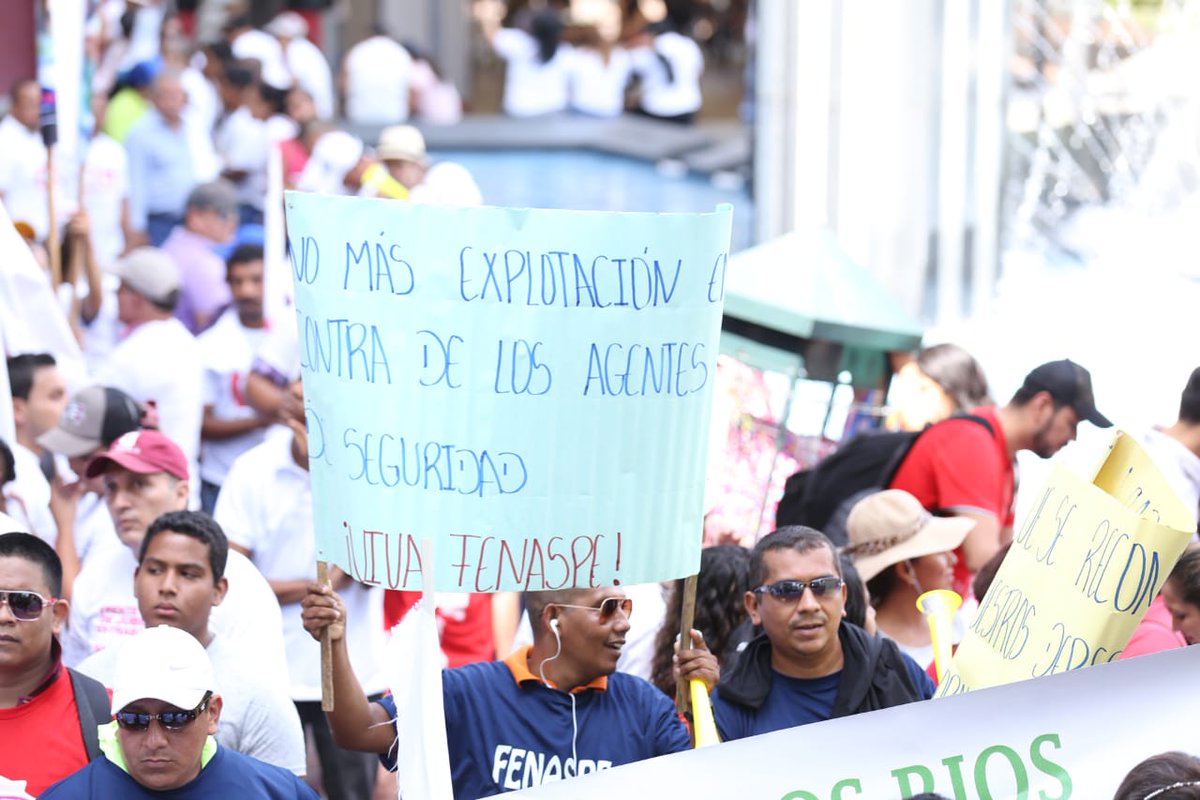 NO MÁS EXPLOTACIÓN E
CONTRA DE LOS AGENTES
DE SEGURIDAD
¡VIVA FENASPE!
FENASPE
SE RECON
DERE
OS RIOS